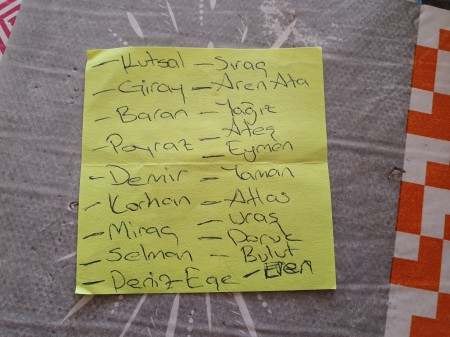 - Kutsal
- Giray
- Baran
- Poyraz
- Demir
- Korhan
- Miraç
- Selman
- Deniz Ege
- Siraç
- Aren Ata
- Yağız
- Ateş
- Eymen
- Yaman
- Atlas
- Uraş
- Doruk
- Bulut
- Eren